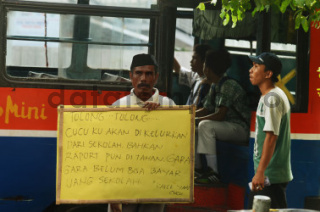 omini
TOLONG TOLONG
CUCU KU AKAN DI KELUARKAN
DARI SEKOLAH, BAHKAN
RAPORT PUN DI TAHAN, GARA
GARA BELUM BISA BAYAR
UANG SEKOLAH